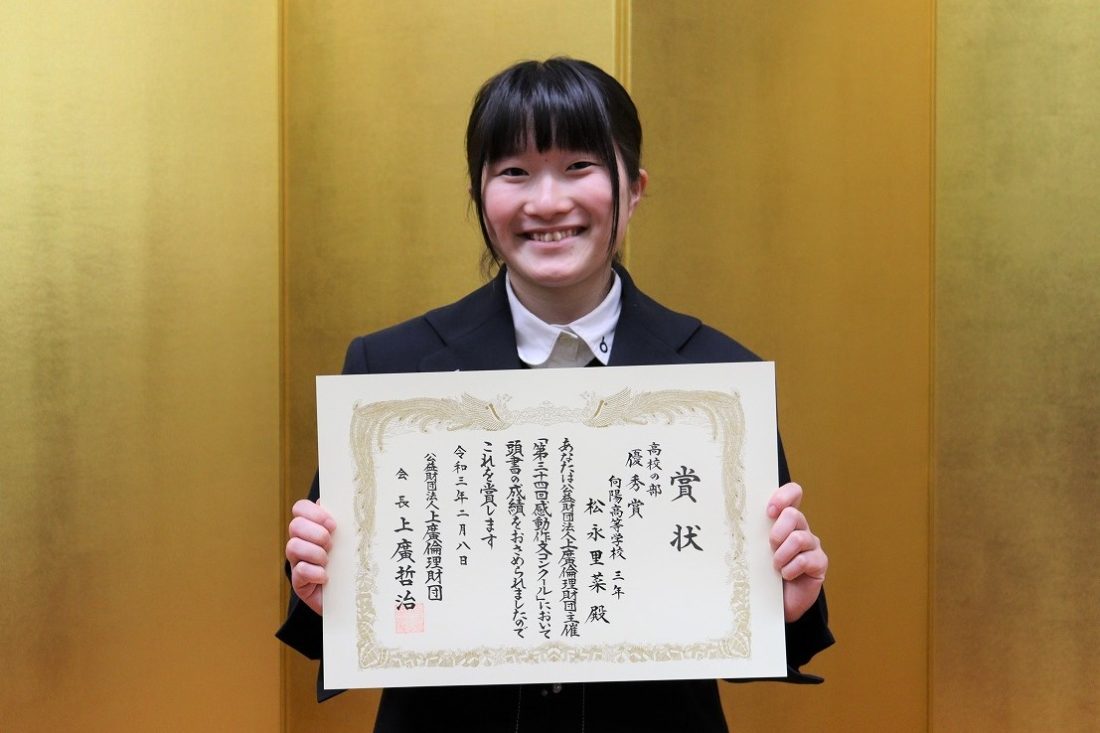 賞状
高校の部
優秀賞
向陽高等学校 三年
松永里菜 殿
あなたは公益財団法人上廣倫理財団主催
「第三十四回感動作文コンクール」において
頭書の成績をおさめられましたので
これを賞します
令和三年二月八日
公益財団法人上廣倫理財団
会長 上廣哲治